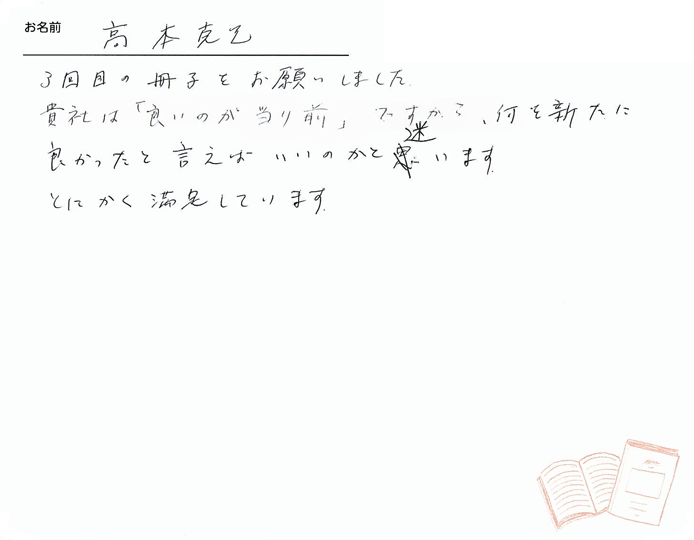 お名前 高本克己
3回目の冊子をお願いしました。
貴社は「良いのが当り前」ですから、何を新たに
良かったと言えばいいのかと迷います。
とにかく満足しています。